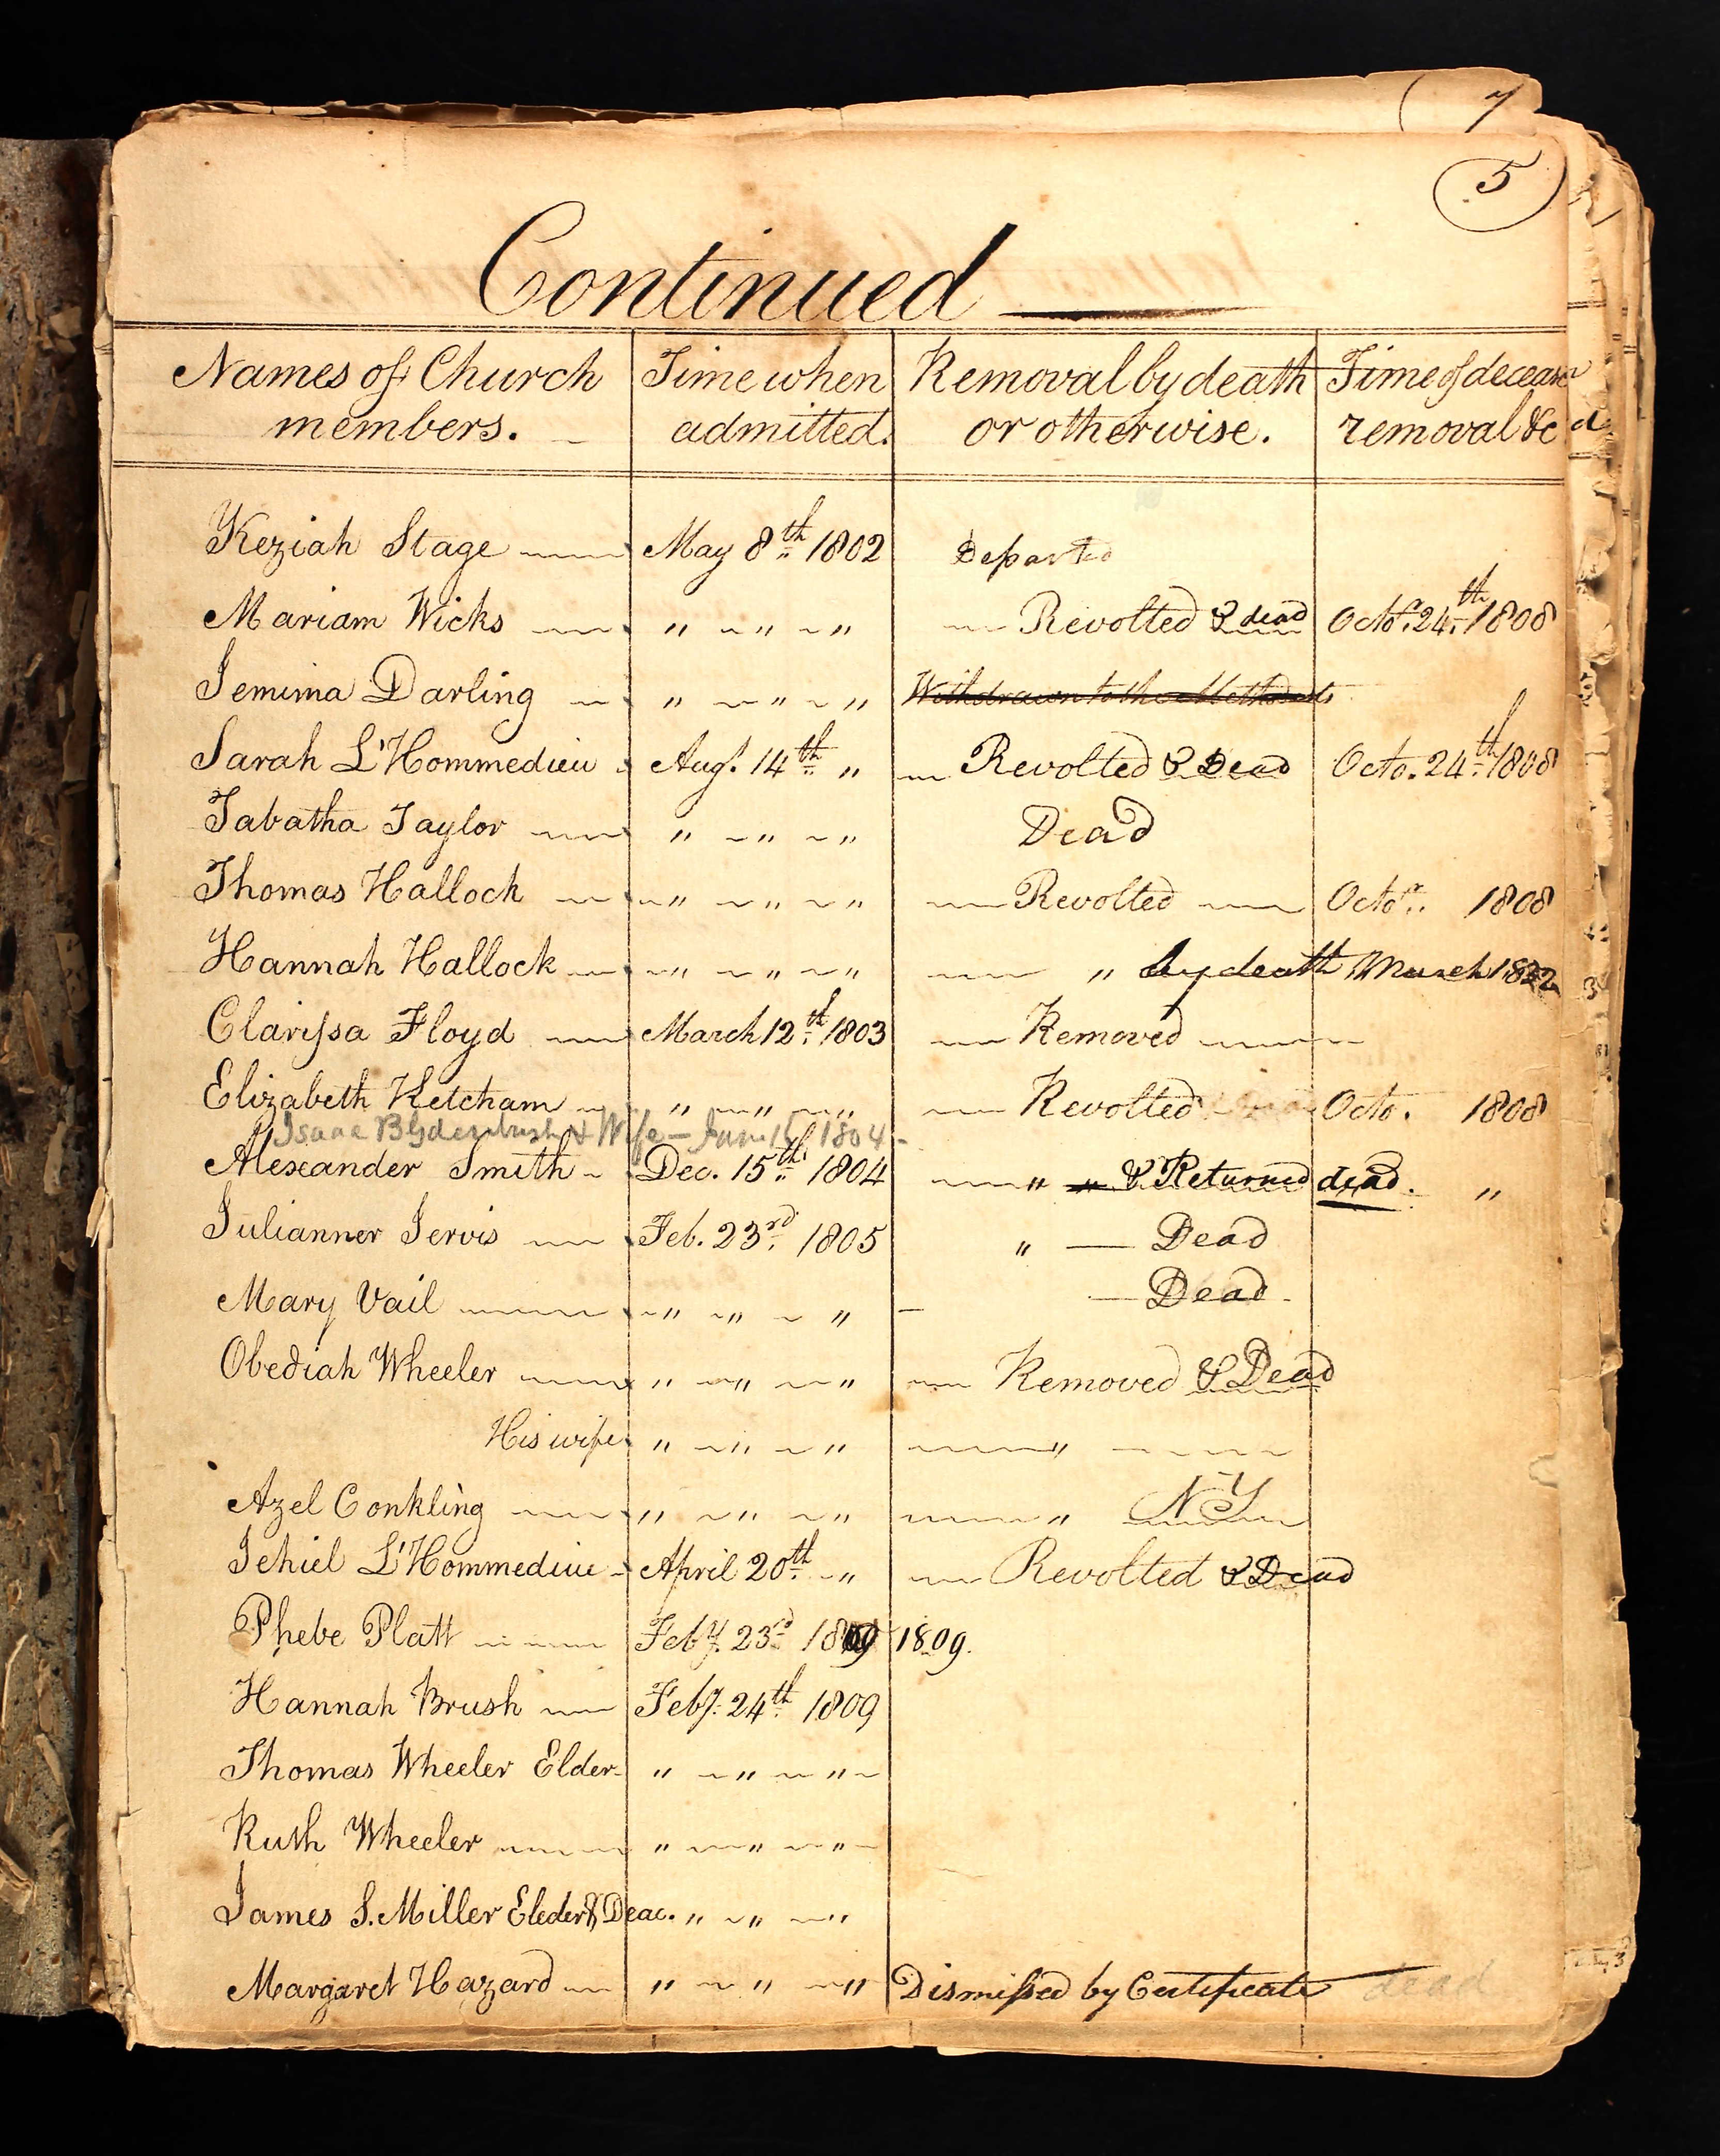 7
5
Continued
Names of Church members. Time when admitted. Removal by death or otherwise. Time of decease removal &c
Keziah Stage May 8th 1802 Departed
Mariam Wicks " " " Revolted & dead Octor. 24th 1808
Jemima Darling " " " Withdrawn to the Methodists
Sarah L'Hommedieu Augt. 14th " Revolted & Dead Octo. 24th 1808
Tabatha Taylor " " " Dead
Thomas Hallock " " " Revolted Octor. 1808
Hannah Hallock " " " " by death March 1822
Clarissa Floyd March 12th 1803 Removed
Elizabeth Ketcham " " " Revolted Octo. 1808
Isaac Blydenbush & Wife - June 15 1804 -
Alexander Smith Dec. 15th 1804 " " & Returned dead. "
Julianner Jervis Feb. 23rd 1805 " Dead
Mary Vail " " " Dead
Obediah Wheeler " " " Removed & Dead
His wife " " " "
Azel Conkling " " " " NY
Jehiel L'Hommedieu April 20th " Revolted & Dead
Phebe Platt Feby. 23rd 1809 1809.
Hannah Brush Feby. 24th 1809
Thomas Wheeler Elder " " "
Ruth Wheeler " " "
James S. Miller Eleder & Deac. " " "
Margaret Hazard " " " Dismissed by Certificate dead